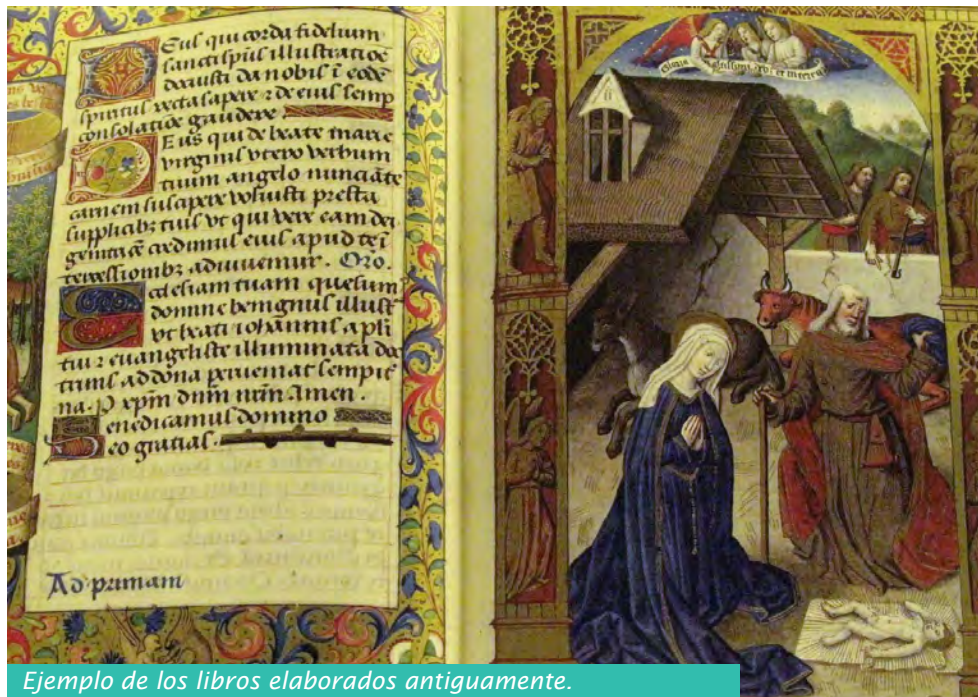 Deus qui corda fidelium
sancti spūs illustratiōe
docuisti da nobis ī eodē
spiritus recta sapere ⁊ de eius semp
consolatiōe gaudere
Deus qui de beate marie
virginis vtero verbum
tuum angelo nunciāte
carnem suscipere voluisti presta
supplicibꝫ tuis vt qui vere eam dei
genitricē credimus eius apud te ī
tercessionibꝫ adiuuemur. Oro.
Ecclesiam tuam quesum
domine benignus illust
vt beati iohannis apli
tui ⁊ euangeliste illuminata doc
trinis ad dona perueniat sempit
na. P xpm dnm nrm Amen.
Benedicamus domino
Deo gratias.
Ad primam
et in terra
Ejemplo de los libros elaborados antiguamente.